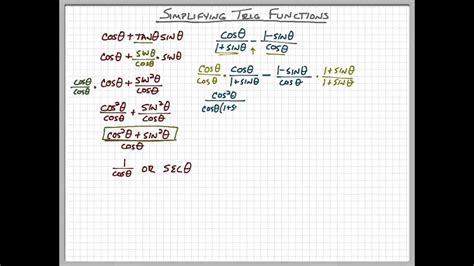 SIMPLIFYING TRIG FUNCTIONS
cosθ + TANθ sinθ
cosθ + sinθ/cosθ · sinθ
cosθ/cosθ · cosθ + sin²θ/cosθ
cos²θ/cosθ + sin²θ/cosθ
cos²θ + sin²θ/cosθ
1/cosθ OR SECθ
cosθ/1+sinθ - 1-sinθ/cosθ
cosθ/cosθ · cosθ/1+sinθ - 1-sinθ/cosθ · 1+sinθ/1+sinθ
cos²θ/cosθ(1+s